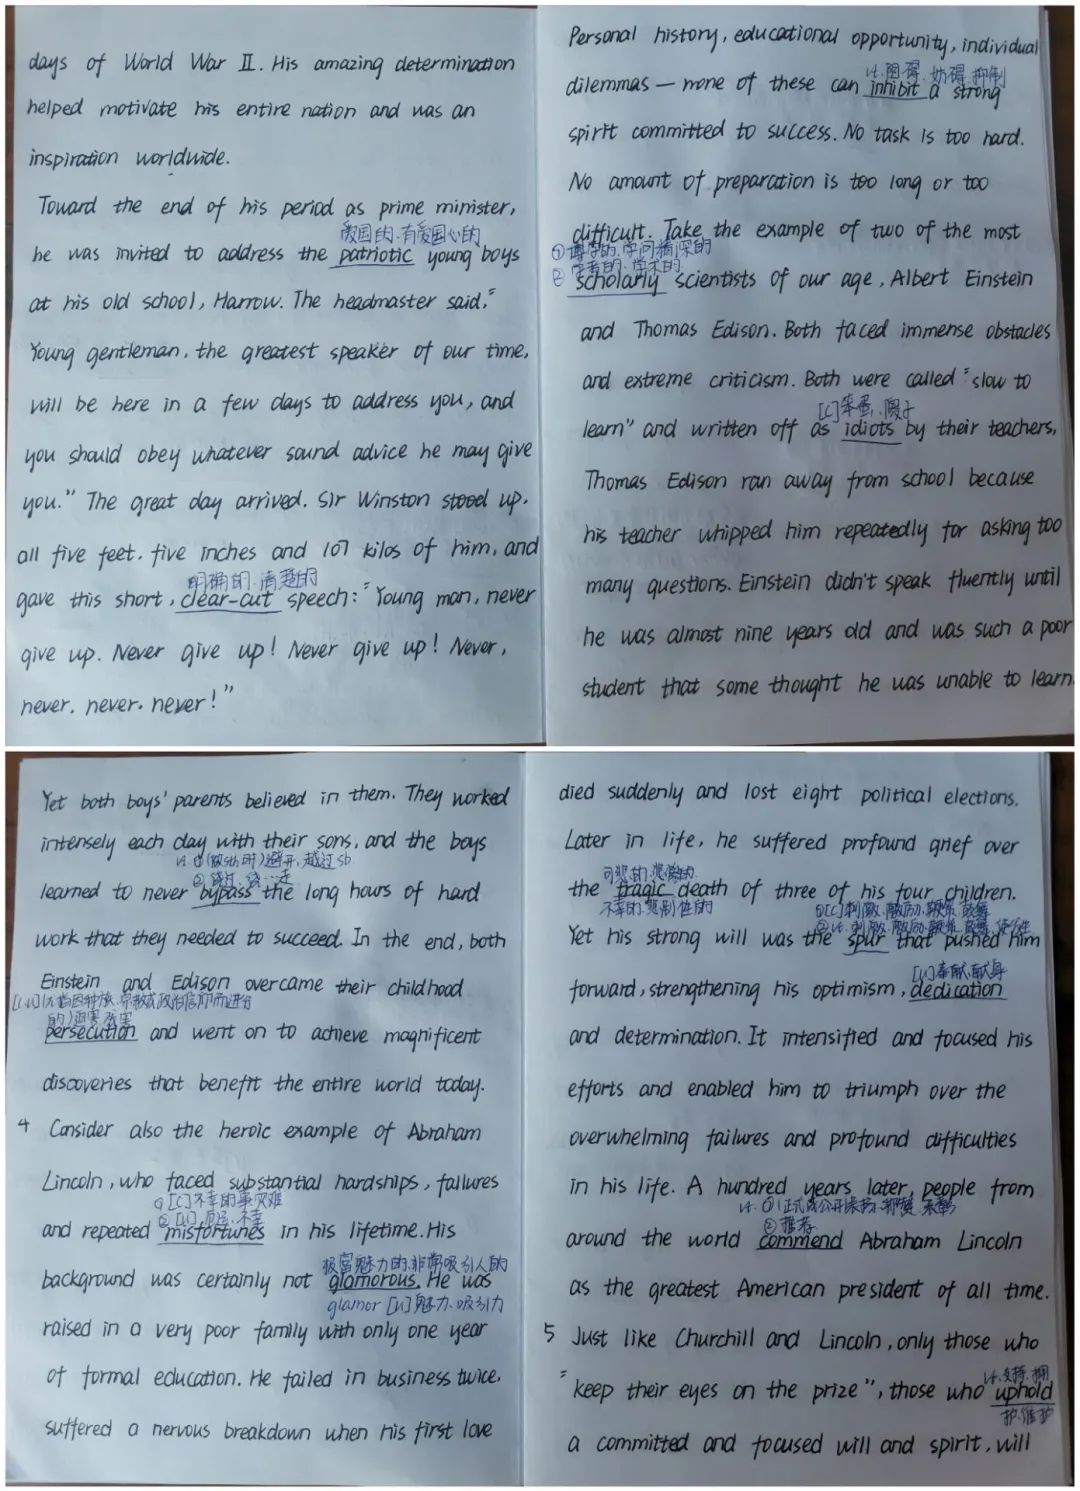 days of World War II. His amazing determination
helped motivate his entire nation and was an
inspiration worldwide.
Toward the end of his period as prime minister,
爱国的.有爱国心的
he was invited to address the patriotic young boys
at his old school, Harrow. The headmaster said,"
Young gentleman, the greatest speaker of our time,
will be here in a few days to address you, and
you should obey whatever sound advice he may give
you." The great day arrived. Sir Winston stood up,
all five feet, five inches and 107 kilos of him, and
明确的.清楚的
gave this short, clear-cut speech: "Young man, never
give up. Never give up! Never give up! Never,
never. never. never!"
Personal history, educational opportunity, individual
vt.阻碍.妨碍.抑制
dilemmas — none of these can inhibit a strong
spirit committed to success. No task is too hard.
No amount of preparation is too long or too
difficult. Take the example of two of the most
①博学的.学问精深的
② 学者的.学术的
scholarly scientists of our age, Albert Einstein
and Thomas Edison. Both faced immense obstacles
and extreme criticism. Both were called "slow to
[C]笨蛋.傻子
learn" and written off as idiots by their teachers,
Thomas Edison ran away from school because
his teacher whipped him repeatedly for asking too
many questions. Einstein didn't speak fluently until
he was almost nine years old and was such a poor
student that some thought he was unable to learn.
Yet both boys' parents believed in them. They worked
intensely each day with their sons, and the boys
vt.①(做sth时)避开,越过sb
②绕过.绕…走
learned to never bypass the long hours of hard
work that they needed to succeed. In the end, both
Einstein and Edison overcame their childhood
[C,U](因种族.宗教或政治信仰而进行
的)迫害.残害
persecution and went on to achieve magnificent
discoveries that benefit the entire world today.
4 Consider also the heroic example of Abraham
Lincoln, who faced substantial hardships, failures
①[C]不幸的事.灾难
②[U]厄运.不幸
and repeated misfortunes in his lifetime. His
极富魅力的.非常吸引人的
background was certainly not glamorous. He was
glamor [U]魅力.吸引力
raised in a very poor family with only one year
of formal education. He failed in business twice,
suffered a nervous breakdown when his first love
died suddenly and lost eight political elections.
Later in life, he suffered profound grief over
可悲的.悲惨的
the tragic death of three of his four children.
不幸的.悲剧性的
①[C]刺激.激励.鞭策.鼓舞
②vt.刺激.激励.鞭策.鼓舞
Yet his strong will was the spur that pushed him
[U]奉献.献身
forward, strengthening his optimism, dedication
and determination. It intensified and focused his
efforts and enabled him to triumph over the
overwhelming failures and profound difficulties
in his life. A hundred years later, people from
vt. ①(正式或公开)表扬.称赞.
②推荐
around the world commend Abraham Lincoln
as the greatest American president of all time.
5 Just like Churchill and Lincoln, only those who
"keep their eyes on the prize", those who uphold
vt.支持.拥
护.维护
a committed and focused will and spirit, will